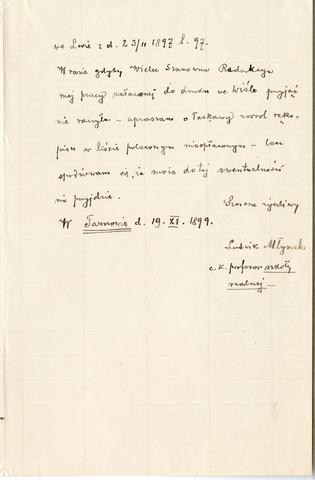 we Lwie z d. 23/II 1897 l. 97.
W razie gdyby Wielce Szanowna Redakcya
mej pracy załączonej do druku we Wiśle przyjąć
nie raczyła – upraszam o łaskawy zwrot ręko-
pisu w liście poleconym nieopłaconym – lecz
spodziewam się, że może do tej ewentualności
nie przyjdzie.
Szczerze życzliwy
W Tarnowie d. 19. XI. 1899.
Ludwik Młynek
c. k. profesor szkoły
realnej –